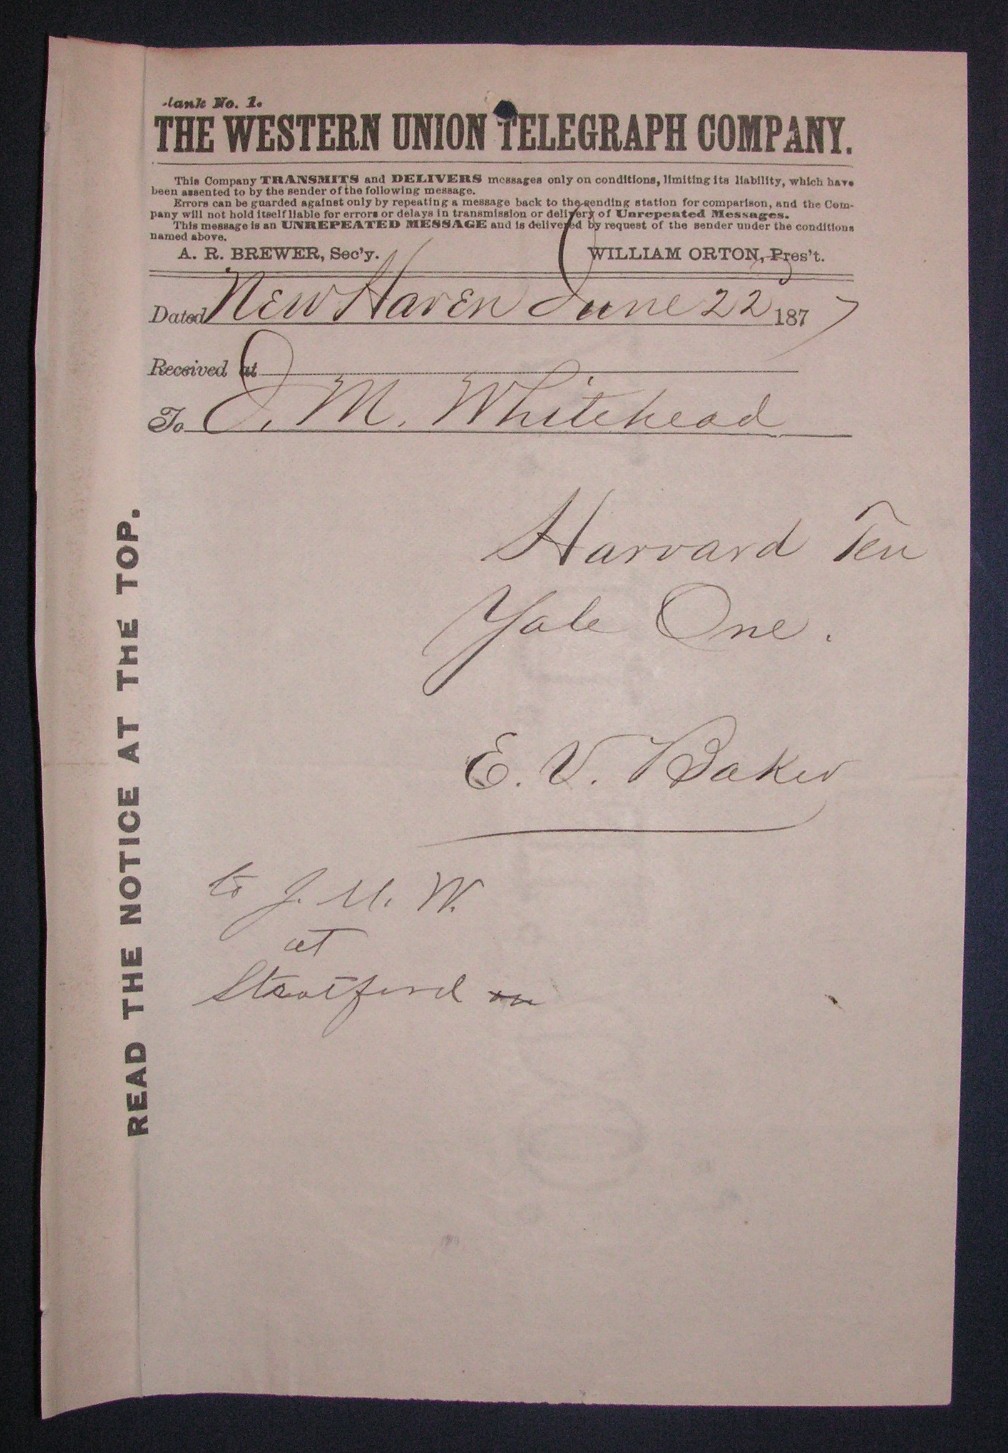 -lank No. 1.
THE WESTERN UNION TELEGRAPH COMPANY.
This Company TRANSMITS and DELIVERS messages only on conditions, limiting its liability, which have
been assented to by the sender of the following message.
Errors can be guarded against only by repeating a message back to the sending station for comparison, and the Com-
pany will not hold itself liable for errors or delays in transmission or delivery of Unrepeated Messages.
This message is an UNREPEATED MESSAGE and is delivered by request of the sender under the conditions
named above.
A. R. BREWER, Sec'y. WILLIAM ORTON, Pres't.
Dated New Haven June 22 1877
Received at
To J. M. Whitehead
Harvard Ten
Yale One.
E. V. Baker
to J. M. W.
at
Stratford
READ THE NOTICE AT THE TOP.